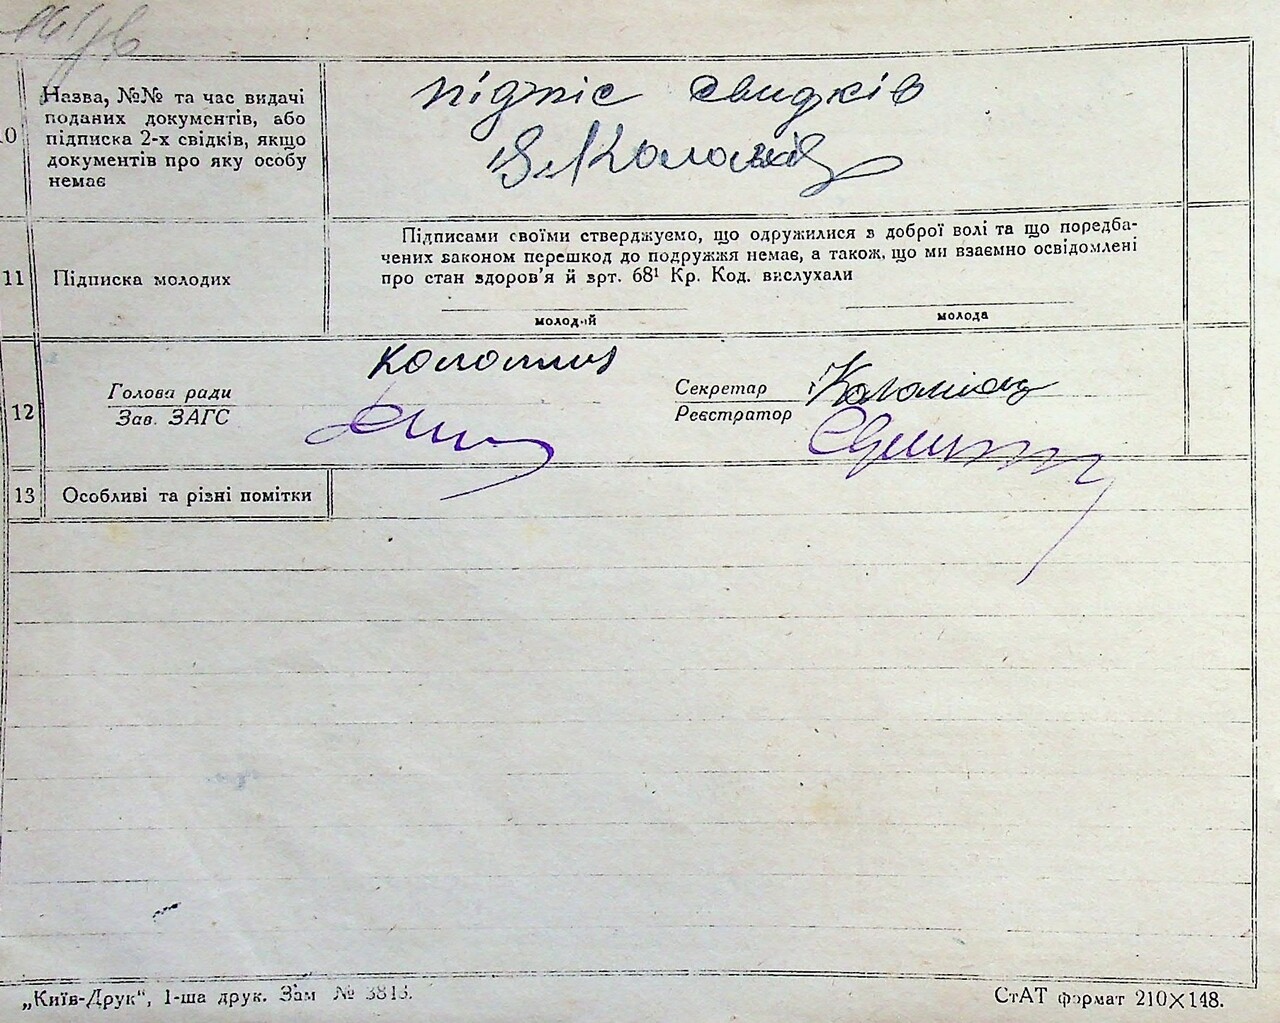 Назва, №№ та час видачі
поданих документів, або
підписка 2-х свідків, якщо
документів про яку особу
немає
підпіс свидків
11 Підписка молодих
Підписами своїми стверджуємо, що одружилися з доброї волі та що поредба-
чених законом перешкод до подружжя немає, а також, що ми взаємно освідомлені
про стан здоров'я й врт. 68¹ Кр. Код. вислухали
молодий
молода
12
Голова ради
Зав. ЗАГС
Секретар
Реєстратор
13 Особливі та різні помітки
„Київ-Друк“, 1-ша друк. Зам № 3813.
СтАТ формат 210×148.